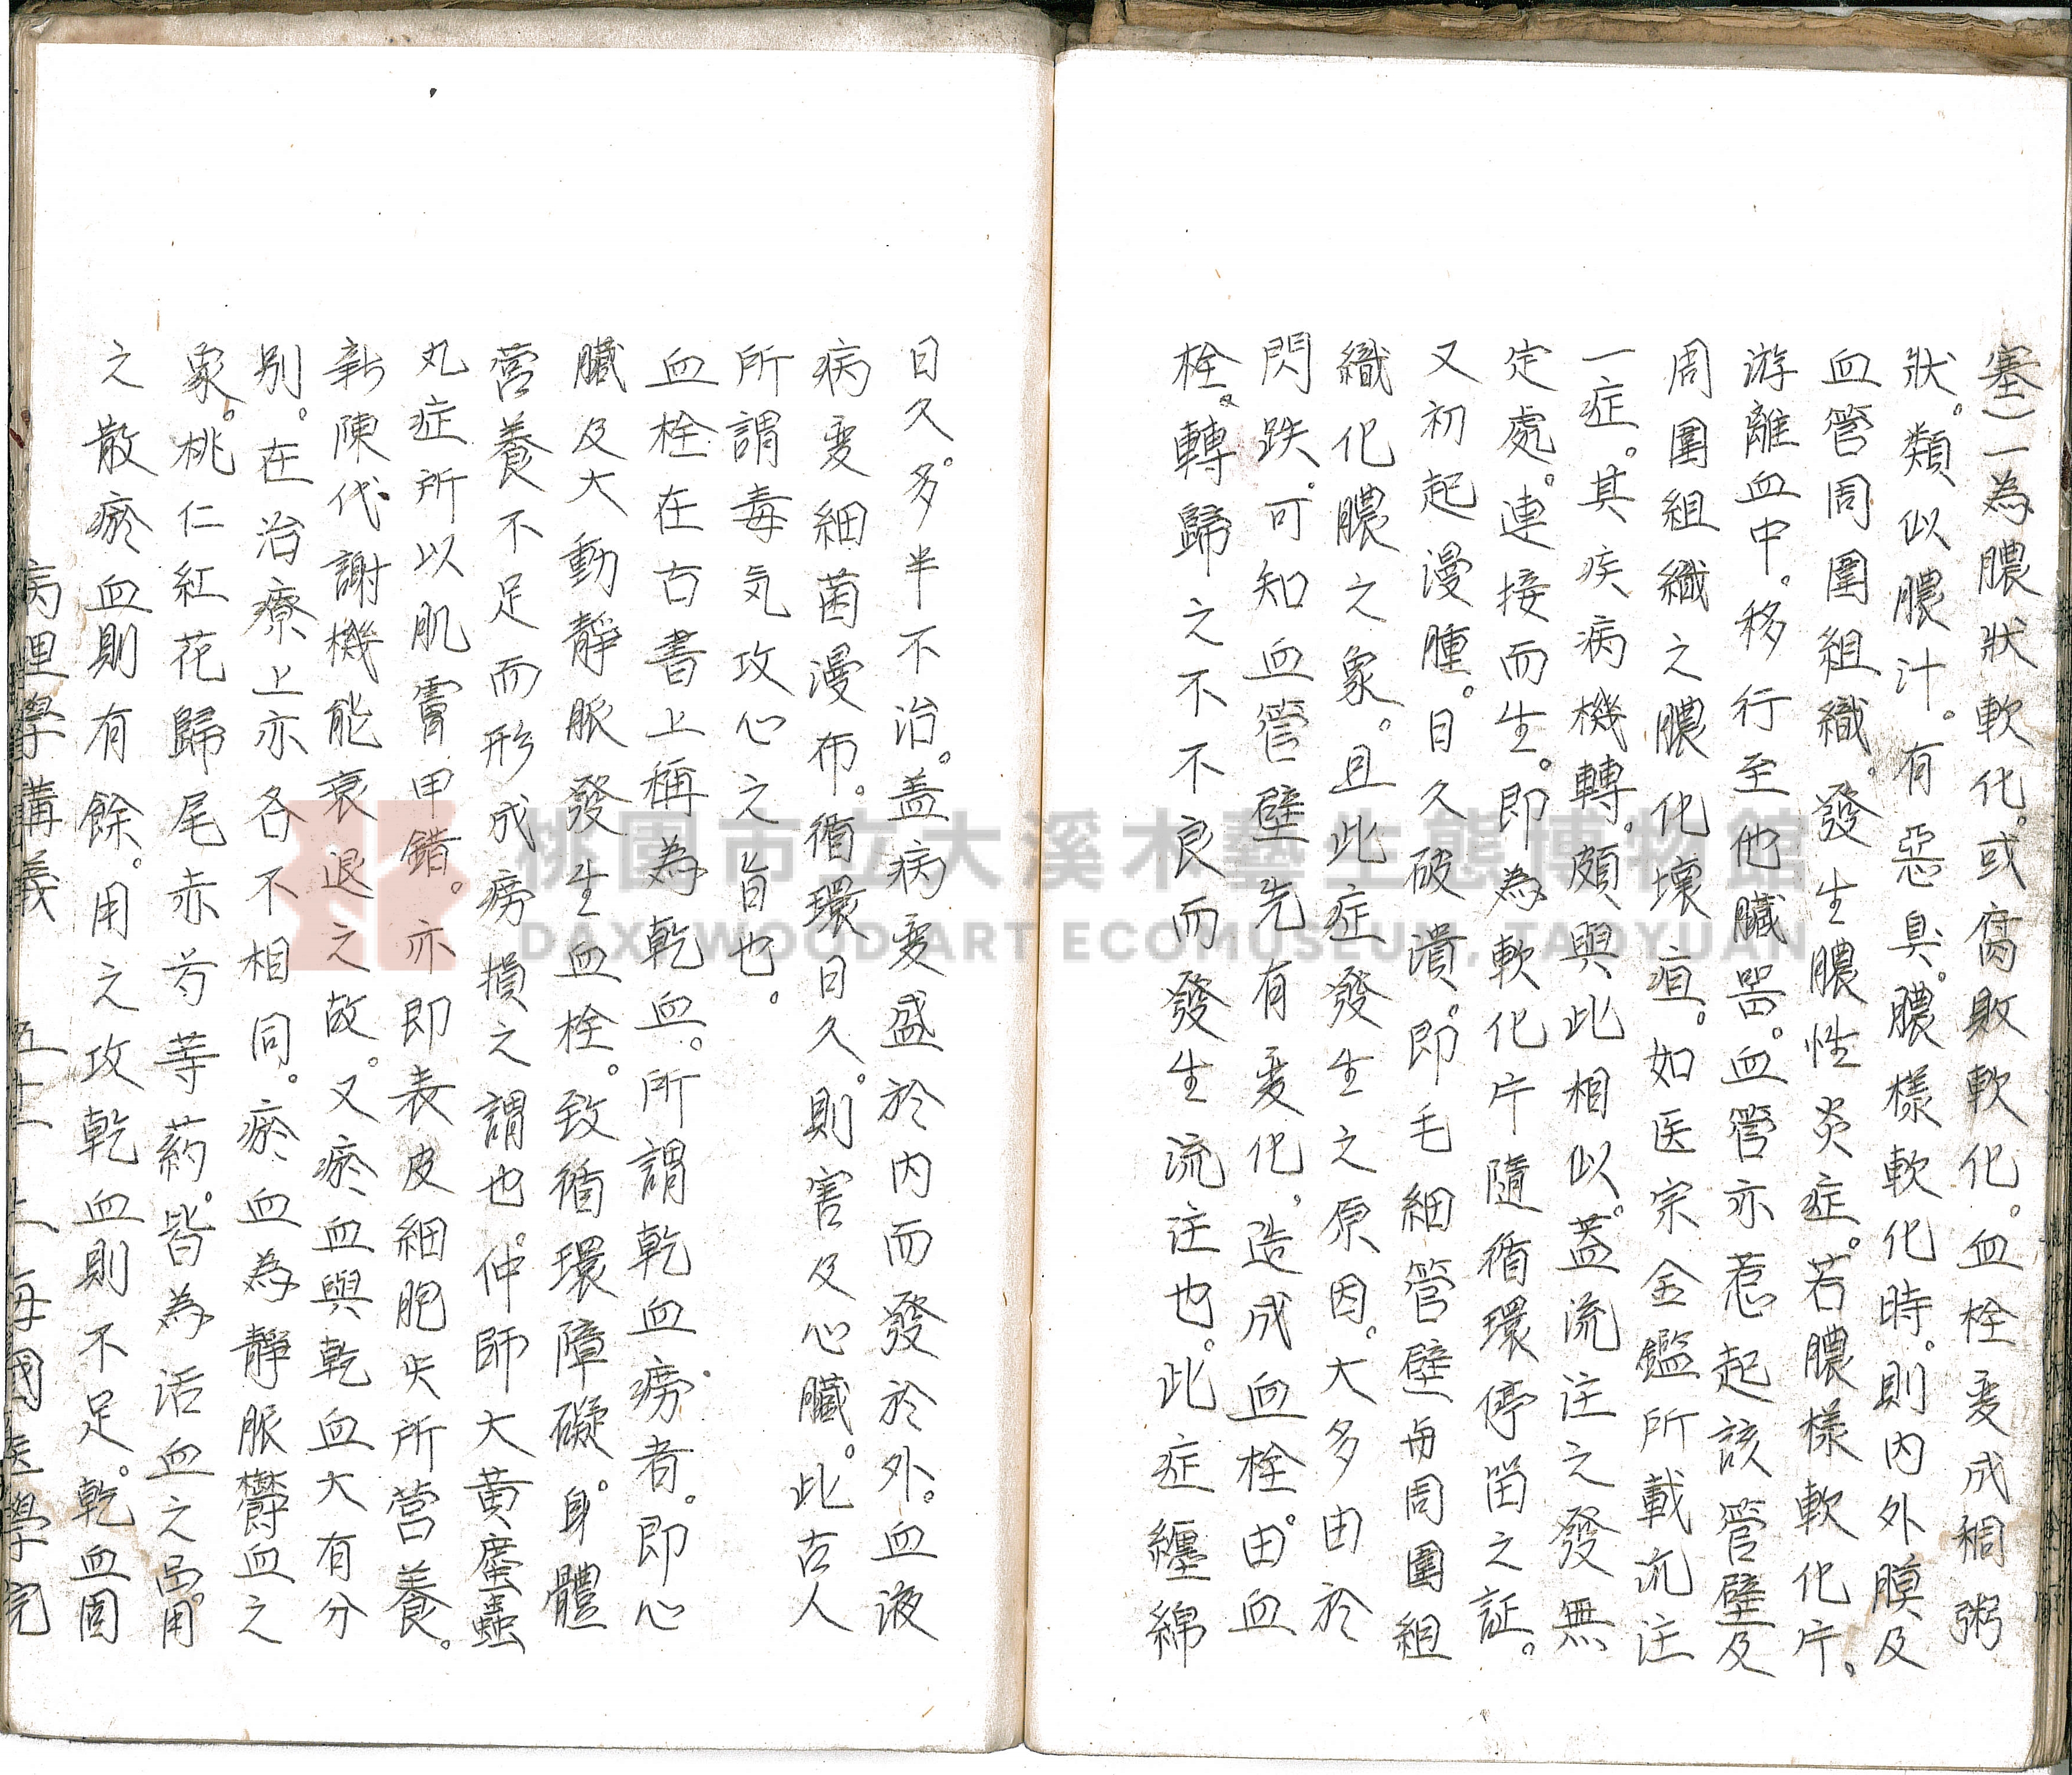 塞)一為膿狀軟化。或腐敗軟化。血栓变成稠粥
狀。類似膿汁。有惡臭。膿樣軟化時。則內外膜及
血管周圍組織。發生膿性炎症。若膿樣軟化片。
游離血中。移行至他臟器。血管亦惹起該管壁及
周圍組織之膿化壞疽。如医宗金鑑所載流注
一症。其疾病機轉。頗與此相似。蓋流注之發無
定處。連接而生。即為軟化片隨循環停留之証。
又初起漫腫。日久破潰。即毛細管壁与周圍組
織化膿之象。且此症發生之原因。大多由於
閃跌。可知血管壁先有变化,造成血栓。由血
栓。轉歸之不不良而發生流注也。此症纏綿
日久。多半不治。蓋病变盛於內而發於外。血液
病变細菌漫布。循環日久。則害及心臟。此古人
所謂毒気攻心之旨也。
血栓在古書上稱為乾血。所謂乾血癆者。即心
臟及大動靜脈發生血栓。致循環障礙。身體
営養不足而形成癆損之謂也。仲師大黃䗪蟲
丸症所以肌膚甲錯。亦即表皮細胞失所営養。
新陳代謝機能衰退之故。又瘀血與乾血大有分
別。在治療上亦各不相同。瘀血為靜脈鬱血之
象。桃仁紅花歸尾赤芍等葯。皆為活血之品。用
之散瘀血則有餘。用之攻乾血則不足。乾血固
病理學講義 五十 上海國医學院
桃園市立大溪木藝生態博物館
DAXI WOOD ART ECOMUSEUM, TAOYUAN